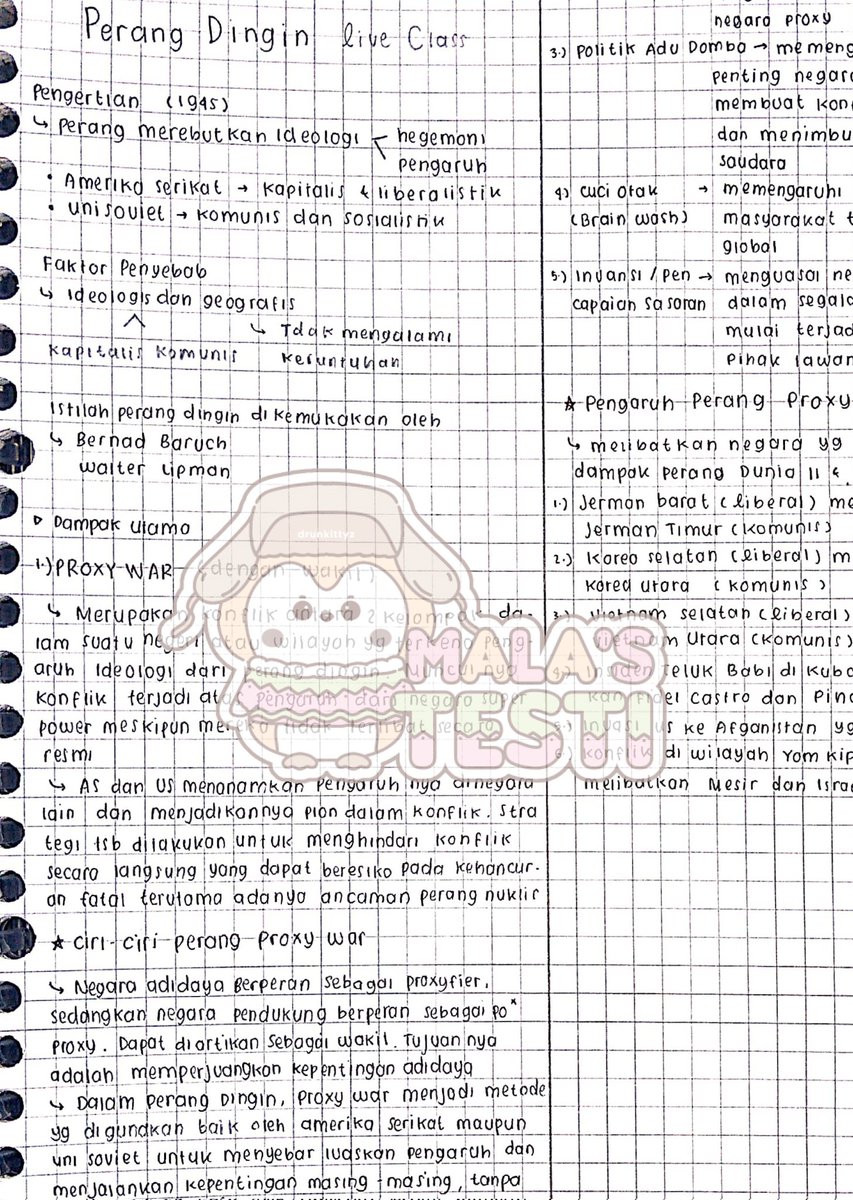 Perang Dingin live Class
Pengertian (1945)
↳ Perang merebutkan Ideologi < hegemoni
pengaruh
• Amerika serikat → kapitalis & liberalistik
• uni soviet → komunis dan sosialistik
Faktor Penyebab
↳ Ideologis dan geografis
kapitalis komunis
↳ Tdak mengalami
keruntuhan
Istilah perang dingin di kemukakan oleh
↳ Bernad Baruch
walter lipman
▷ Dampak utama
1.) PROXY WAR (dengan wakil)
↳ Merupakan konflik antara 2 kelompok da-
lam suatu negeri atau wilayah yg terkena peng-
aruh Ideologi dari perang dingin. Munculnya
konflik terjadi atas pengaruh dari negara super
power meskipun mereka tidak terlibat secara
resmi
↳ AS dan US menanamkan pengaruh nya dinegara
lain dan menjadikannya pion dalam konflik. Stra
tegi tsb dilakukan untuk menghindari konflik
secara langsung yang dapat beresiko pada kehancur-
an fatal terutama adanya ancaman perang nuklir
★ ciri-ciri perang Proxy war
↳ Negara adidaya Berperan sebagai proxyfier,
sedangkan negara pendukung berperan sebagai po*
proxy. Dapat diartikan sebagai wakil. Tujuan nya
adalah memperjuangkan kepentingan adidaya
↳ Dalam perang Dingin, proxy war menjadi metode
yg digunakan baik oleh amerika serikat maupun
uni soviet untuk menyebar luaskan pengaruh dan
menjalankan kepentingan masing-masing, tanpa
negara proxy
3.) Politik Adu Domba → memeng
penting negara
membuat kon
dan menimbu
saudara
4.) cuci otak → memengaruhi
(Brain wash) masyarakat t
global
5.) Invansi / pen → menguasai ne
capaian sasaran dalam segala
mulai terjad
Pihak lawan
★ Pengaruh Perang Proxy
↳ melibatkan negara yg
dampak perang Dunia II &
1.) Jerman barat (liberal) me
Jerman Timur (komunis)
2.) Korea selatan (liberal) m
korea utara (komunis)
3.) Vietnam selatan (liberal)
Vietnam Utara (komunis)
4.) Insiden Teluk Babi di Kuba
kan Fidel Castro dan Pina
5.) Invasi us ke Afganistan yg
6.) konflik di wilayah Yom Kip
melibatkan Mesir dan Isra
drunkittyz
MALA'S
TESTI